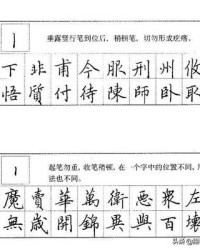 垂露竖行笔到位后，稍顿笔，切勿形成疙瘩。
下非甫今服刑州攸
悟質付待陳師卧取
起笔勿重，收笔稍顿，在一个字中的位置不同，用
法也不同。
魔賣華萬衛惡眾左
無歲開錦異與百壞